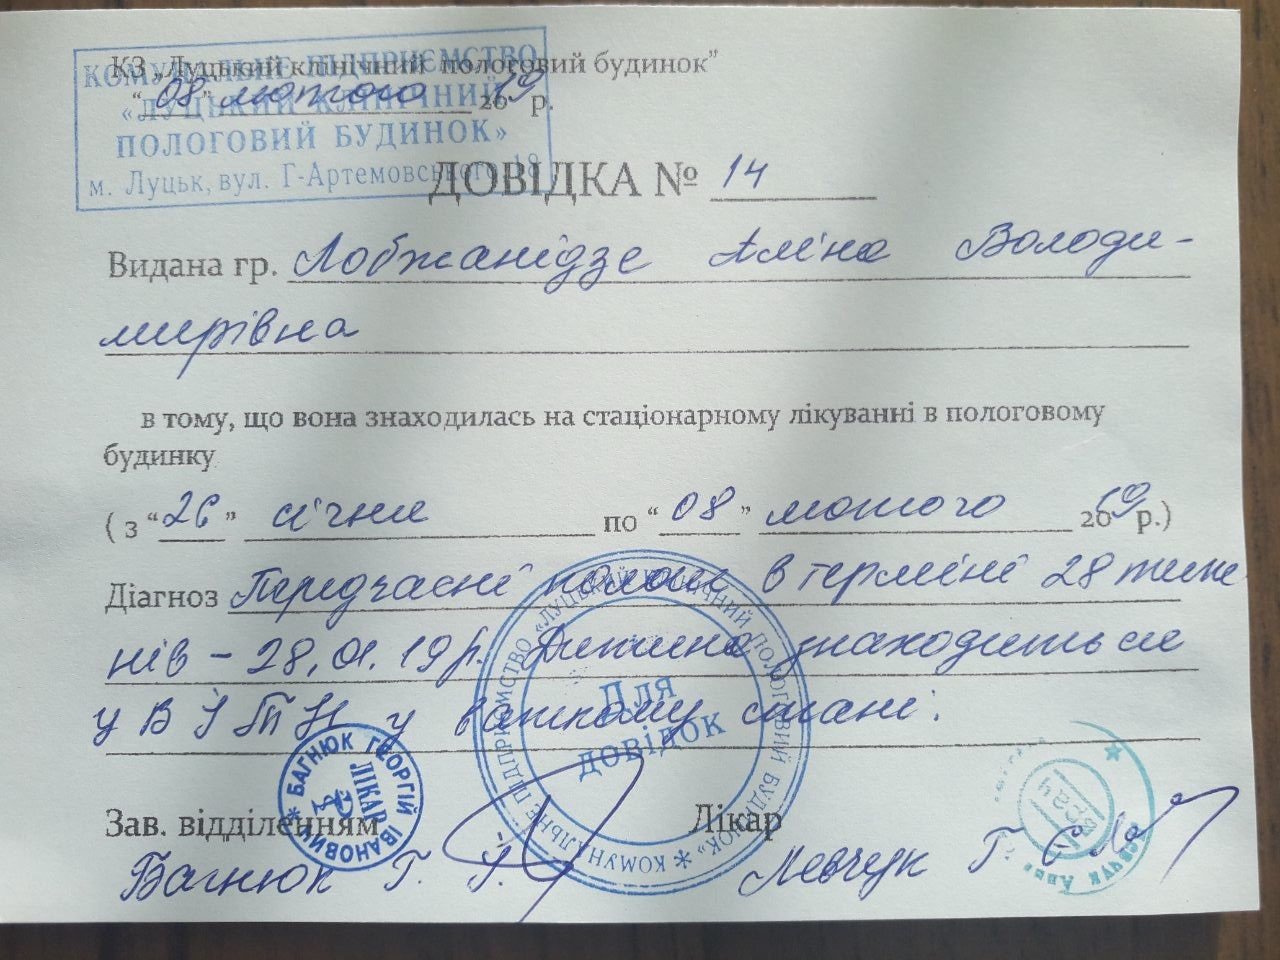 КЗ „Луцький клінічний пологовий будинок"
КОМУНАЛЬНЕ ПІДПРИЄМСТВО
«ЛУЦЬКИЙ КЛІНІЧНИЙ
ПОЛОГОВИЙ БУДИНОК»
м. Луцьк, вул. Г-Артемовського, 18
"08" лютого 2019 р.
ДОВІДКА № 14
Видана гр. Лобжанідзе Аліна Володи-
мирівна
в тому, що вона знаходилась на стаціонарному лікуванні в пологовому
будинку
( з "26" січня по "08" лютого 2019 р.)
Діагноз Передчасні пологи в терміні 28 тиж
нів - 28.01.19 р. Дитина знаходиться
у ВІТН у важкому стані.
КОМУНАЛЬНЕ ПІДПРИЄМСТВО «ЛУЦЬКИЙ КЛІНІЧНИЙ ПОЛОГОВИЙ БУДИНОК»
Для
довідок
БАГНЮК ГЕОРГІЙ ІВАНОВИЧ
ЛІКАР
Зав. відділенням Лікар
Багнюк Г. І. Левчук Г.